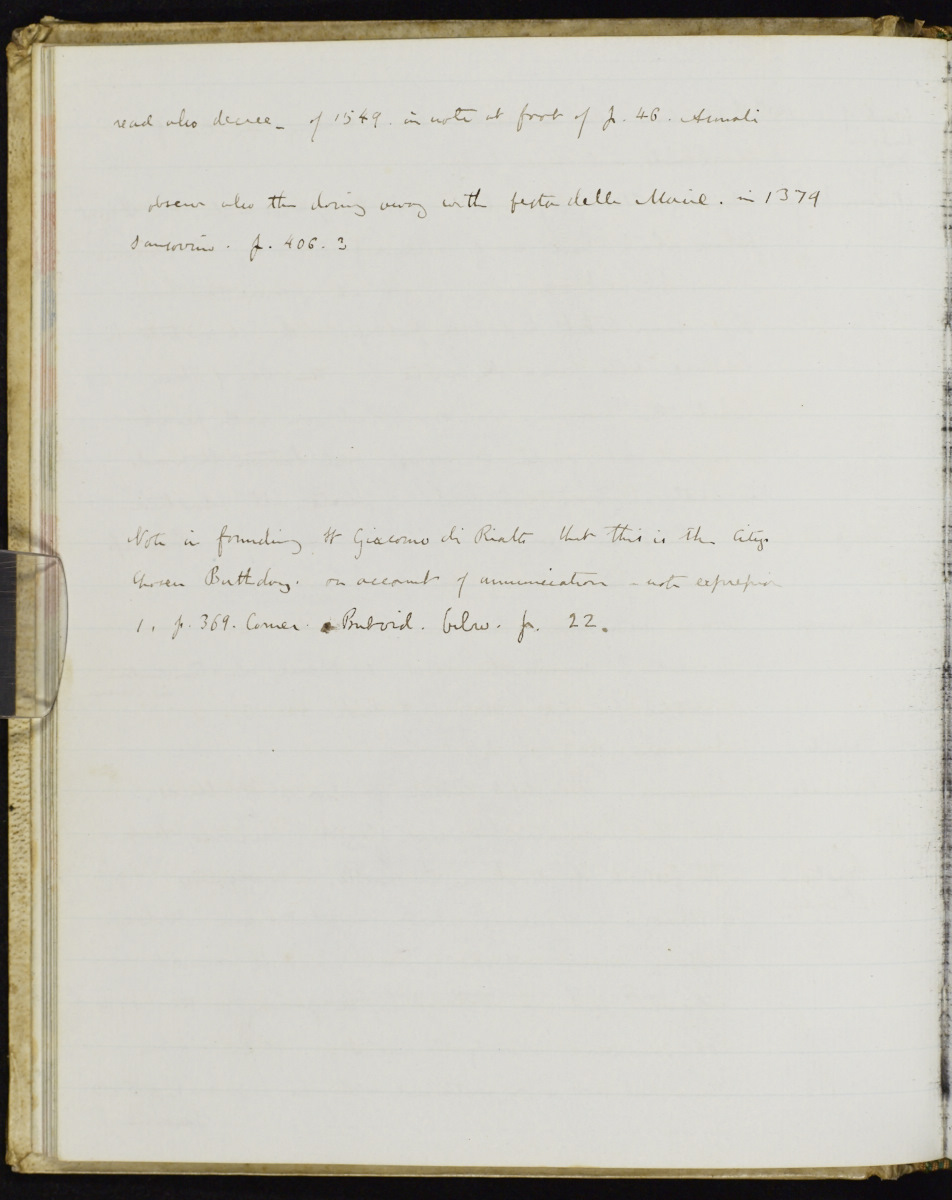 read also decree - of 1549. in note at foot of p. 46. Annali
observe also the doing away with festa delle Marie. in 1379
Sansovino. p. 406. 3
Note in founding St Giacomo di Rialto that this is the Citys
Chosen Birthday. on account of annunciation - note expression
1. p. 369. Corner. below. p. 22.